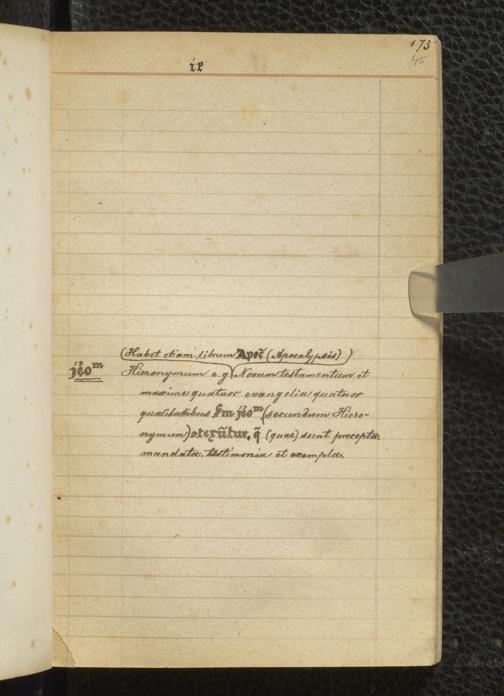 173
45
ie
(Habet etiam librum Apoc̃ (Apocalypsis))
jẽo^m Hieronymum e.g. Novum testamentum et
maxime quatuor evangelia quatuor
qualitatibus s̃m jẽo^m (secundum Hiero-
nymum) q̃ (quae) sunt precepta,
mandata, testimonia et exempla.